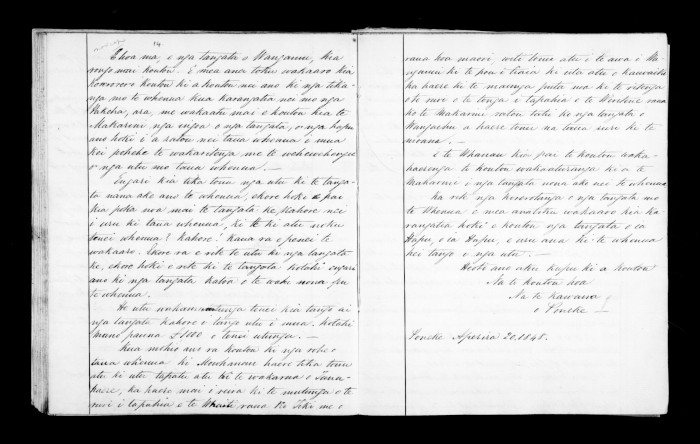 14
E hoa ma, e nga tangata o Wanganui, kia
rongo mai koutou. E mea ana toku wakaaro kia
korerorero koutou ki a koutou nei ano ki nga tika-
nga mo te whenua kua karangatia nei mo nga
Pakeha, ara, me wakaatu mai e koutou kia te
Makarini nga ingoa o nga tangata, o nga hapu
ano hoki i a ratou nei taua whenua i mua
kei poheke te wakaritenga me te wehewehenga
o nga utu mo taua whenua. —
Engari kia tika tonu nga utu ki te tanga-
ta nana ake ano te whenua, ekore hoki e pai
kia poka noa mai te tangata ke, kahore nei
i uru ki taua whenua, ki te ki atu noku
tenei whenua! Kahore! kaua ra e penei te
wakaaro. Ekore ra e rite te utu ki nga tangata
ke, ekore hoki e rite ki te tangata kotahi engari
ano ki nga tangata katoa o te wahi nona pu
te whenua.
He utu wakamutunga tenei kia tango ai
nga tangata kahore i tango utu i mua. Kotahi
mano pauna £1000 o tenei utunga. —
Kua mohio ano ra koutou ki nga rohe o
taua whenua ki Mouhanau haere tika tonu
atu ki uta tapatu atu ki te wakarua o Tunu-
haere, ka haere mai i reira ki te mutunga o te
moi i tapahia e te Waiti raua ko Teke me o
raua hoa maori, witi tonu atu i te awa i Wa-
nganui ki te pou i tiaia ki uta atu o Kauwaika
ka haere ki te maunga puta noa ki te ritenga
o te moi o te tonga i tapahia e te Wireti raua
ko te Makarini ratou tahi ko nga tangata o
Wangaehu a haere tonu na taua rure ki te
moana. —
E te Whanau kia pai te koutou waka-
haerenga te koutou wakaaturanga ki a te
Makarini i nga tangata nona ake nei te whenua
ka rite nga korerotanga o nga tangata mo
te Whenua e mea ana toku wakaaro kia ka-
rangatia hoki e koutou nga tangata o ia
Hapu, o ia Hapu, e uru ana ki te whenua
hei tango i nga utu. —
Heoti ano aku kupu ki a koutou
Na te koutou hoa
Na te Kawana
o Poneke —
Poneke Aperira 20. 1848.